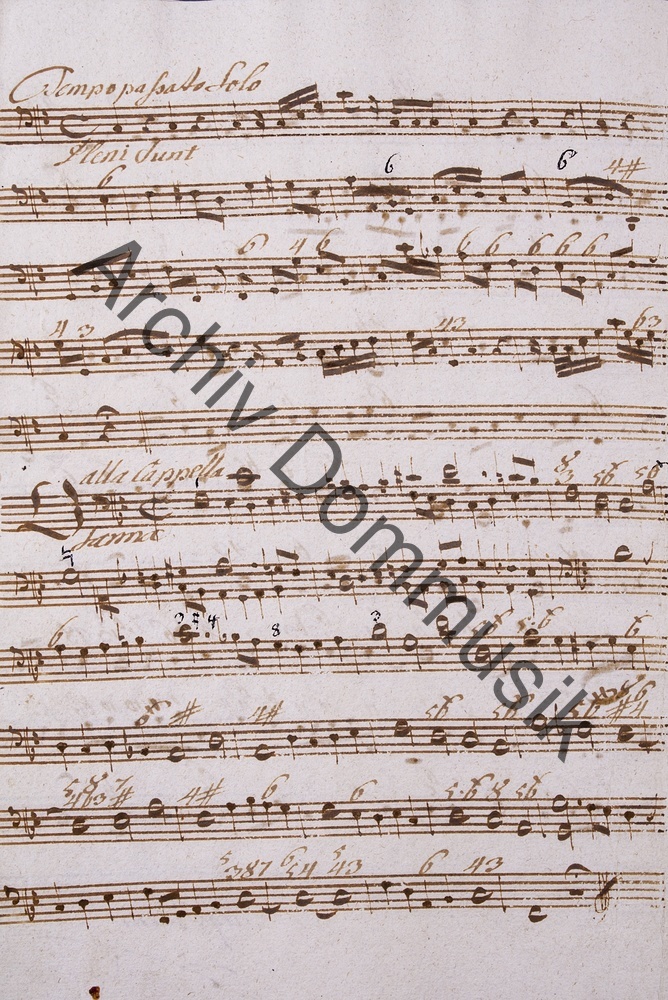 Tempo passato Solo
Pleni Sunt
6 6 6 4#
6 4 6 6 6 6 6 6
4 3 43 63
alla Cappella
8 3 56 56
Sanna
3 4
6 8 3 6 5 6 6
# 4# 56 56 6 #4
5 8 7
4 6 3 # 4# 6 6 5 6 8 56
5 387 6 54 5 43 6 43
Archiv Dommusik